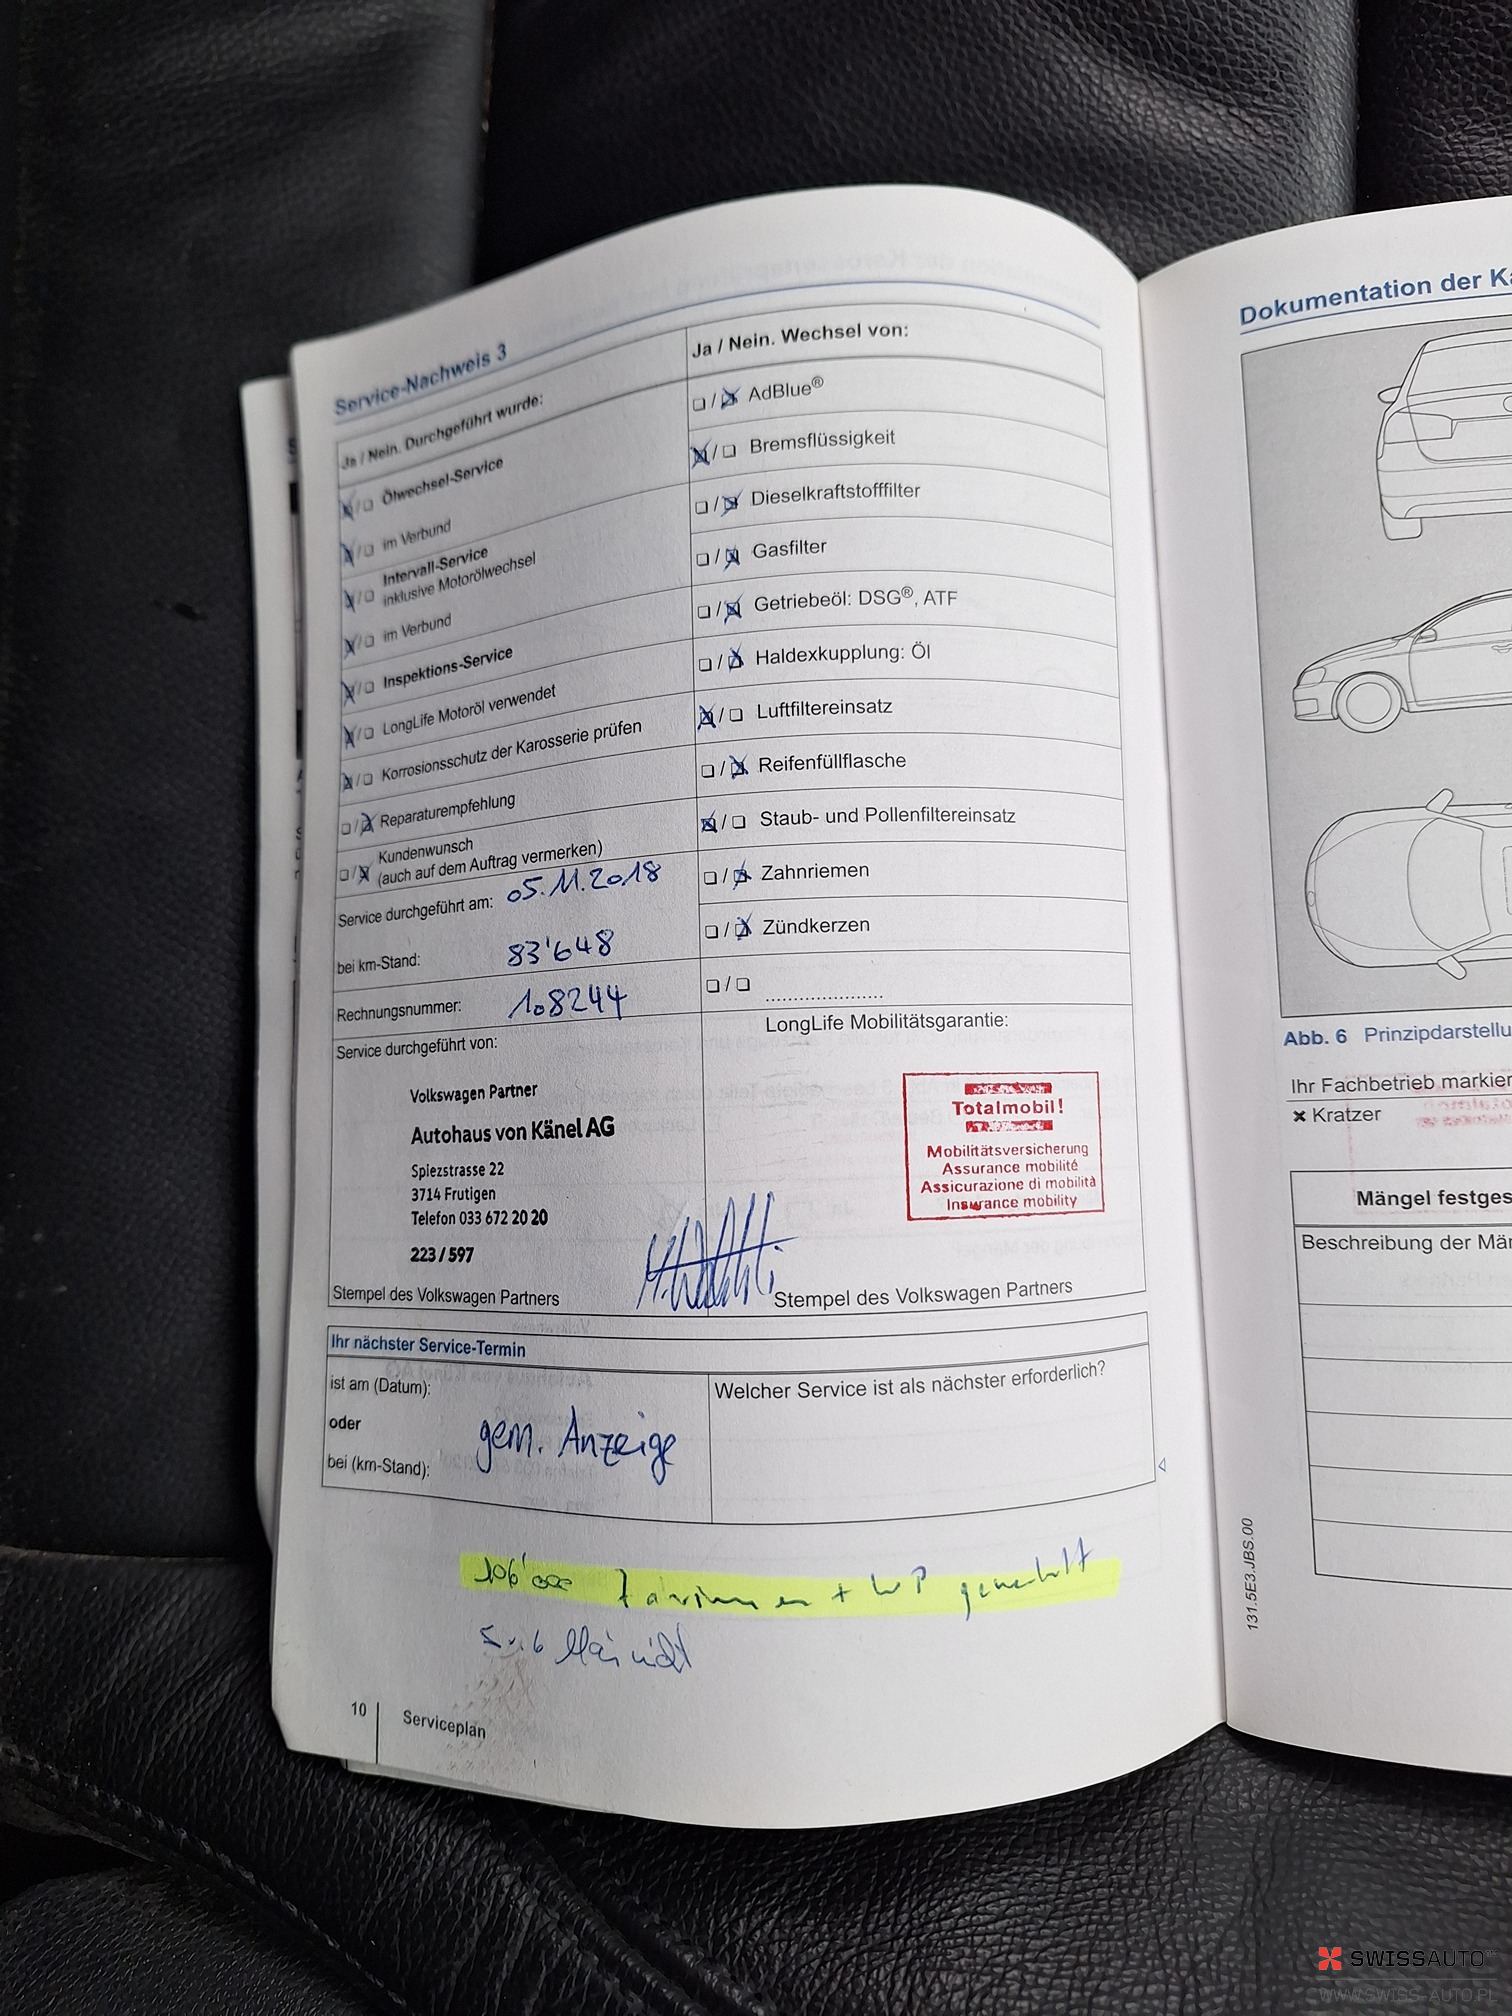 Service-Nachweis 3
Ja / Nein. Durchgeführt wurde:
Ölwechsel-Service
im Verbund
Intervall-Service
inklusive Motorölwechsel
im Verbund
Inspektions-Service
LongLife Motoröl verwendet
Korrosionsschutz der Karosserie prüfen
Reparaturempfehlung
Kundenwunsch
(auch auf dem Auftrag vermerken)
Service durchgeführt am: 05.11.2018
bei km-Stand: 83'648
Rechnungsnummer: 108244
Service durchgeführt von:
Volkswagen Partner
Autohaus von Känel AG
Spiezstrasse 22
3714 Frutigen
Telefon 033 672 20 20
223 / 597
Stempel des Volkswagen Partners
Ja / Nein. Wechsel von:
AdBlue®
Bremsflüssigkeit
Dieselkraftstofffilter
Gasfilter
Getriebeöl: DSG®, ATF
Haldexkupplung: Öl
Luftfiltereinsatz
Reifenfüllflasche
Staub- und Pollenfiltereinsatz
Zahnriemen
Zündkerzen
LongLife Mobilitätsgarantie:
Totalmobil!
Mobilitätsversicherung
Assurance mobilité
Assicurazione di mobilità
Insurance mobility
Stempel des Volkswagen Partners
Ihr nächster Service-Termin
ist am (Datum):
oder
bei (km-Stand):
gem. Anzeige
Welcher Service ist als nächster erforderlich?
106'000 + WP
10
Serviceplan
Dokumentation der Ka
Abb. 6 Prinzipdarstellu
Ihr Fachbetrieb markier
× Kratzer
Mängel festges
Beschreibung der Män
131.5E3.JBS.00
SWISSAUTO
WWW.SWISS-AUTO.PL